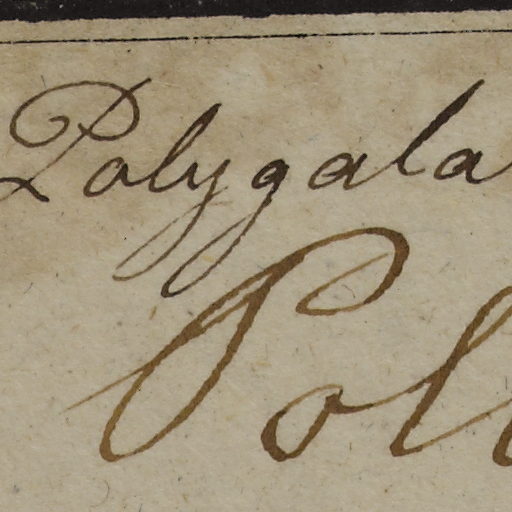 Polygala
Pol